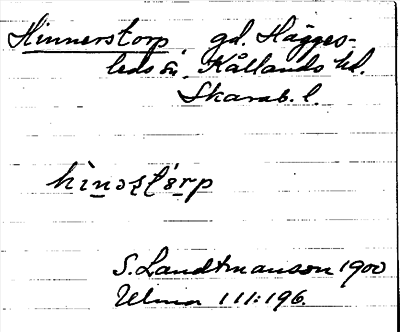 Hinnerstorp, gd. Hägges-
leds sn. Kållands hd.
Skarab. l.
hìnəʂt́ɵrp
S. Landtmanson 1900
Ulma 111:196.